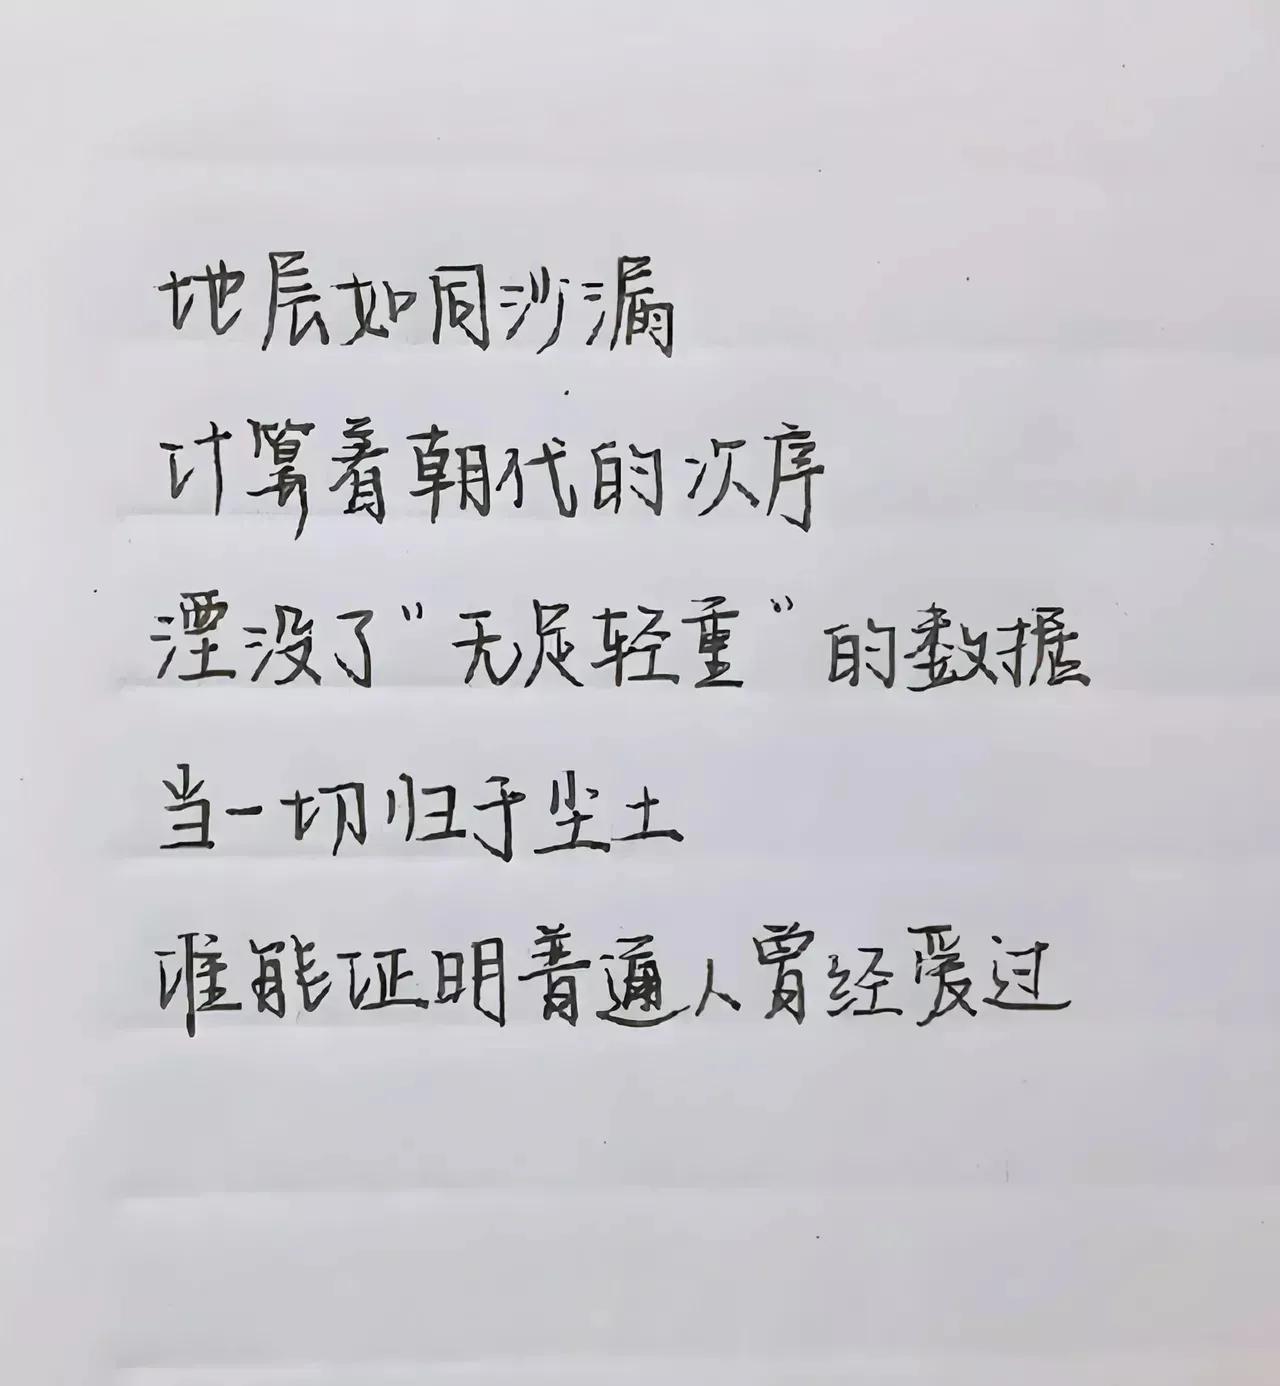 地层如同沙漏
计算着朝代的次序
湮没了“无足轻重”的数据
当一切归于尘土
谁能证明普通人曾经爱过